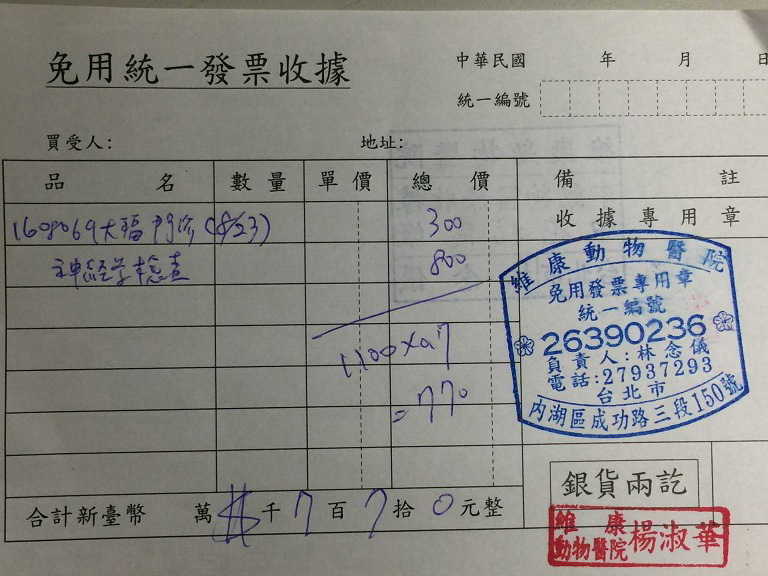 免用統一發票收據
中華民國 年 月 日
統一編號
買受人: 地址:
品名 數量 單價 總價 備註
1608069大福 門診 (8/23) 300 收據專用章
神經学檢查 800
1100×0.7
=770
維康動物醫院
免用發票專用章
統一編號
26390236
負責人:林念儀
電話:27937293
台北市
內湖區成功路三段150號
銀貨兩訖
合計新臺幣 萬 千 7 百 7 拾 0 元整
維康
動物醫院 楊淑華